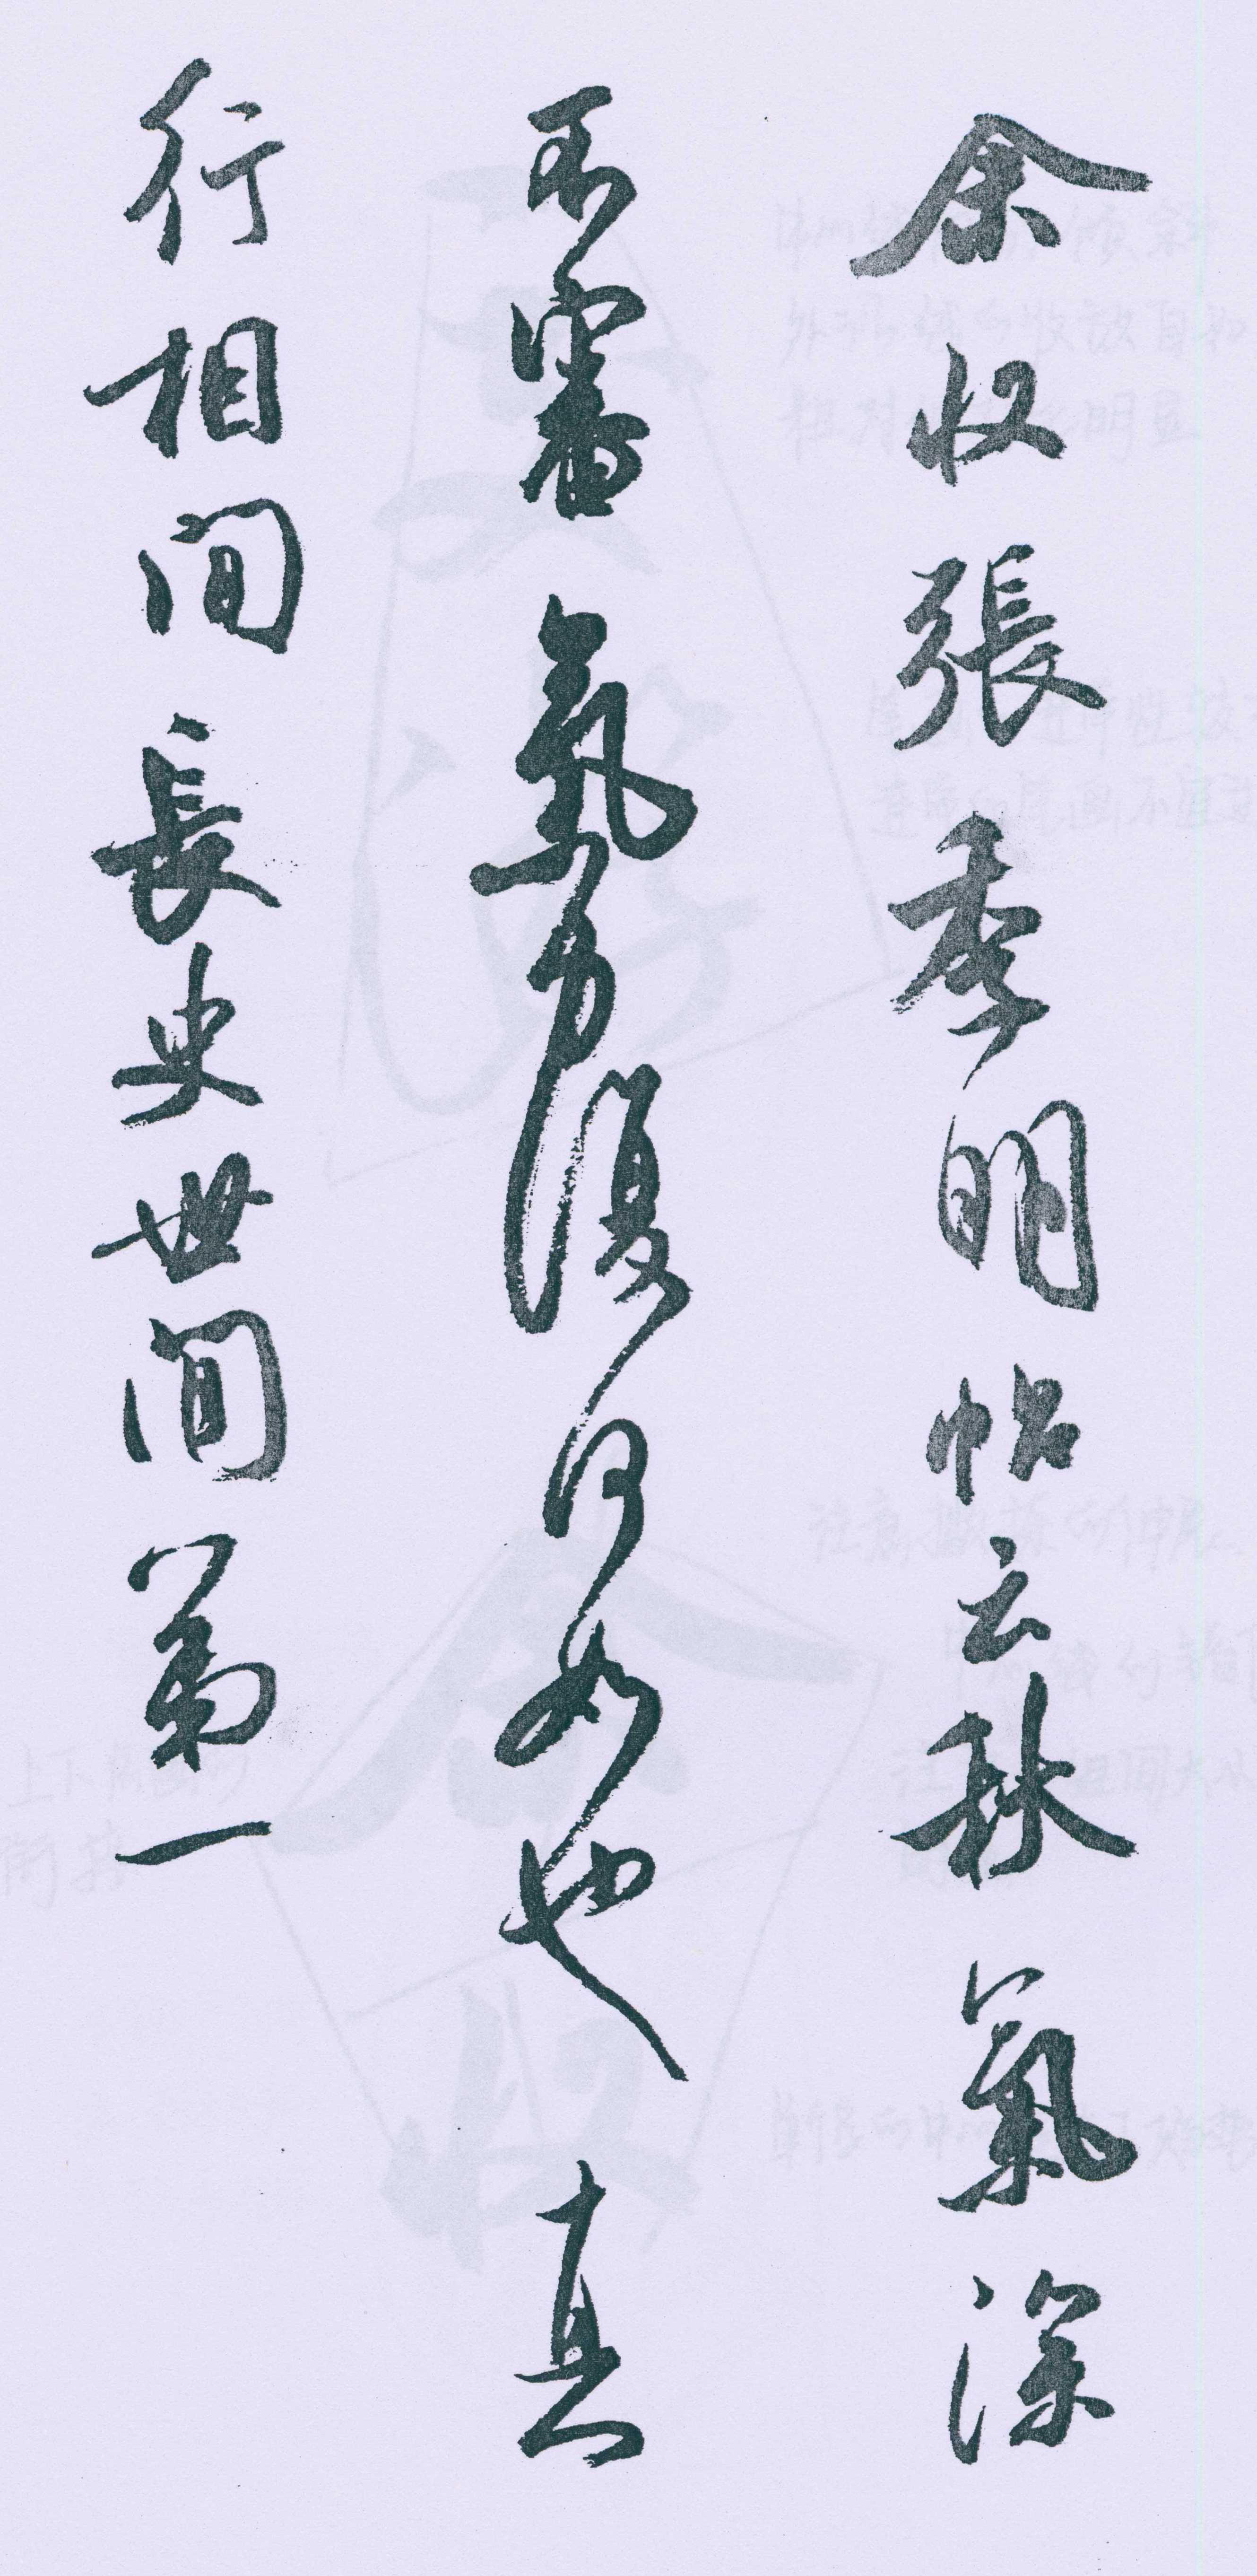 余收張季明帖云秋氣深
不審氣力復何如也真
行相間長史世間第一